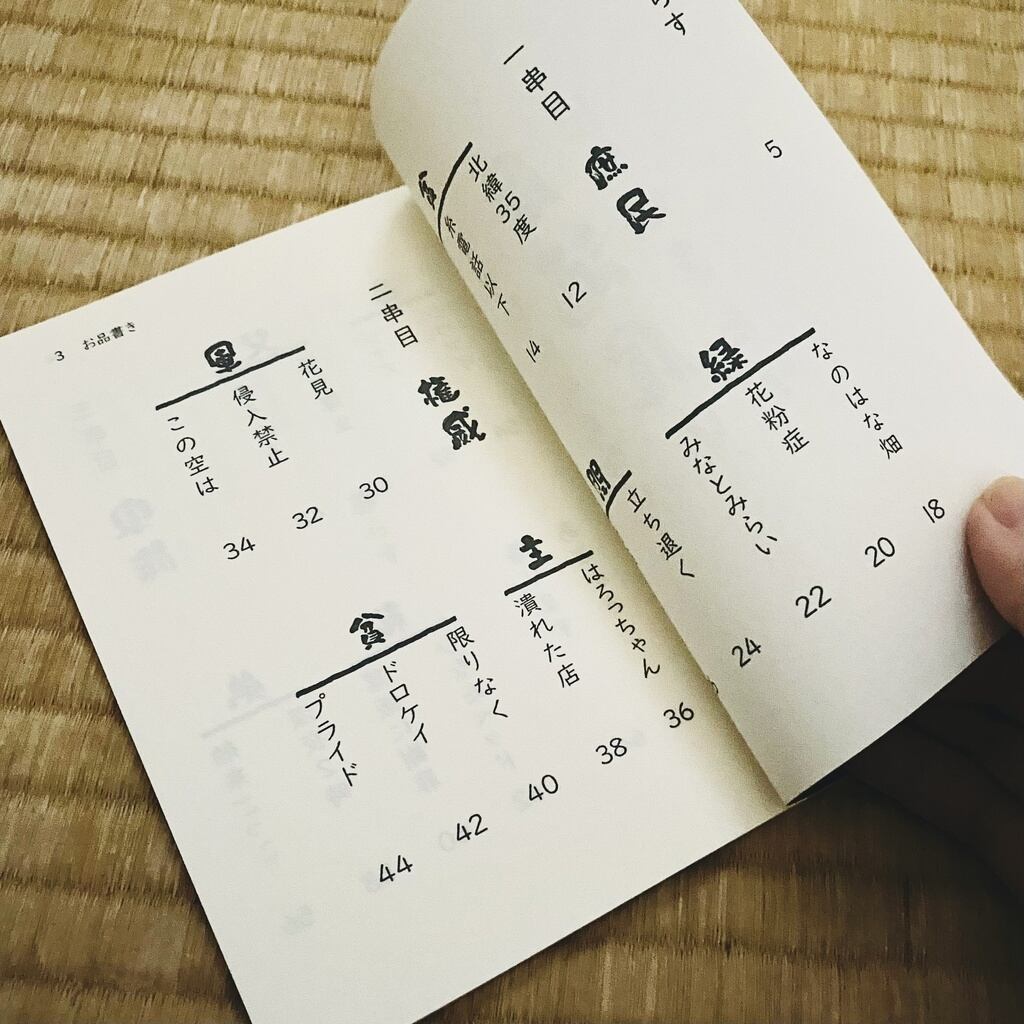 す
5
一串目
庶民
北緯35度
12
糸電話以下
14
緑
なのはな畑
18
花粉症
20
みなとみらい
22
立ち退く
24
二串目
花見
30
侵入禁止
32
この空は
34
主
はろっちゃん
36
潰れた店
38
貧
限りなく
40
ドロケイ
42
プライド
44
3 お品書き